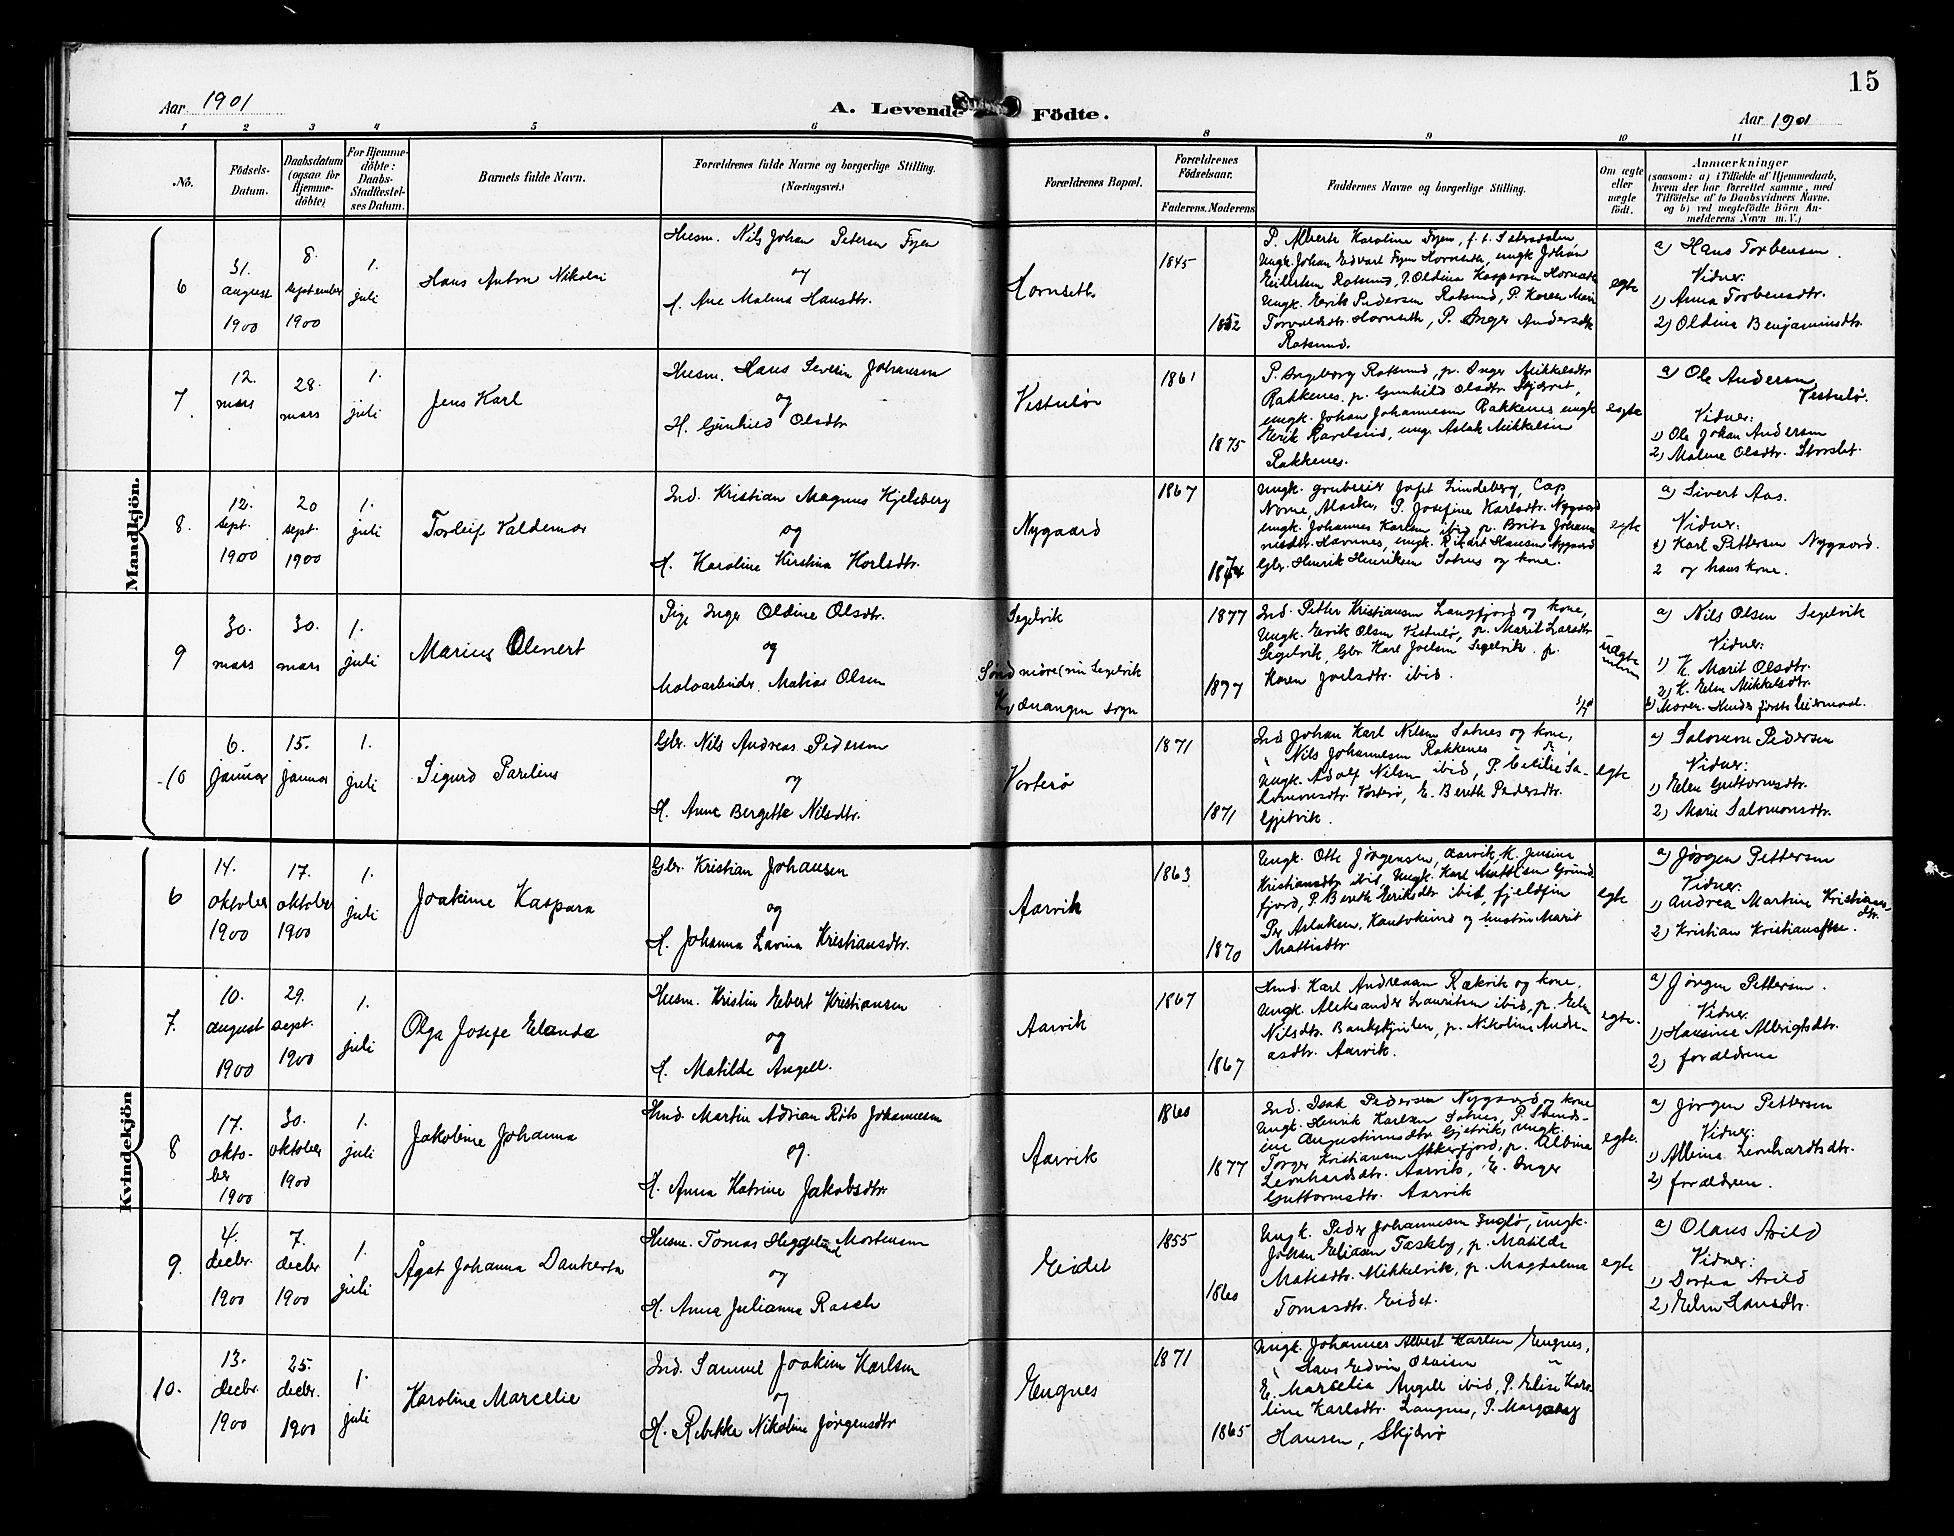 15
Aar 1901
A. Levende Födte.
Aar 1901
1 2 3 4 5 6 8 9 10 11
No.
Födsels-
Datum.
Daabsdatum
(ogsaa for
Hjemme-
döbte)
For Hjemme-
döbte:
Daabs-
Stadfæstel-
ses Datum.
Barnets fulde Navn.
Forældrenes fulde Navne og borgerlige Stilling.
(Næringsvei.)
Forældrenes Bopæl.
Forældrenes
Födselsaar.
Faderens. Moderens
Faddernes Navne og borgerlige Stilling.
Om ægte
eller
uægte
födt.
Anmærkninger
(saasom: a) i Tilfælde af Hjemmedaab,
hvem der har forrettet samme, med
Tilföielse af to Daabsvidners Navne.
og b) ved uægtefödte Börn An-
melderens Navn m. V.)
Mandkjön.
6
31.
august
1900
8.
september
1900
1.
juli
Hans Anton Nikolai
Husm. Nils Johan Petersen Fyen
og
H. Ane Malena Hansdtr.
Hornseth
1845
1852
P. Alberte Karoline Fyen,
Ungk. Johan Edvart Fyen Hornseth, ungk Johan
Rotsund, P. Oldina Kaspara Hornseth
Ungk. Erik Pedersen Rotsund, P. Karen Marie
Torvaldsdtr. Hornseth, P. Inger Andersdtr
Rotsund.
egte
a) Hans Torbensen.
Vidner:
1) Anna Torbensdtr.
2) Oldina Benjaminsdtr.
7
12.
mars
28.
mars
1.
juli
Jens Karl
Husm. Hans Severin Johansen
og
H. Gunhild Olsdtr
Vesterlø
1861
1875
P. Ingeborg Rotsund, p. Inger Mikkelsdtr
Rakkenes, p. Gunhild Olsdtr. Skjervø,
ungk. Johan Johannesen Rakkenes ungk
Erik Ravelsund, ung. Aslak Mikkelsen
Rakkenes.
egte
a) Ole Andersen
Vesterlø.
Vidner:
1) Ole Johan Andersen
2) Malene Olsdtr. Storslet.
8.
12.
sept.
1900
20
sept
1900
1.
juli
Torleif Valdemar
Ind. Kristian Magnus Kjelsberg
og
H. Karoline Kirstina Karlsdtr.
Nygaard
1867
1874
Ungk. gruberier Jafet Lindeberg, Cap
Nome, Alaska, P. Josefine Karlsdtr. Nygaard
ungk. Johannes Karlsen ibid, p. Brita Johan-
nesdtr. Havnnes, ungk. Rikart Hansen Nygaard
Gbr. Henrik Henriksen Sotnes og kone.
egte
a) Sivert Aas.
Vidner:
1) Karl Pettersen Nygaard.
2 og hans kone.
9
30.
mars
30.
mars
1.
juli
Marius Olenert
Pige Inger Oldine Olsdtr.
og
Matias Olsen
Segelvik
Søndmøre (nu Segelvik
Kvænangen sogn
1877
1877
Ind. Petter Kristiansen Langfjord og kone,
Ungk. Erik Olsen Vesterlø, p. Marit Larsdtr
Segelvik, Gbr. Karl Joelsen Segelvik. p.
Karen Joelsdtr. ibid.
uægte
a) Nils Olsen Segelvik
Vidner:
1) K. Marit Olsdtr.
2) K. Elen Mikkelsdtr.
b) Moren. Hendes første leiermaal.
10
6.
januar
15.
januar
1.
juli
Sigurd Parelius
Gbr. Nils Andreas Pedersen
og
H. Anne Bergette Nilsdtr.
Vorterø
1871
1871
Ind Johan Karl Nilsen Sotnes og kone,
" Nils Johannesen Rakkenes " "
Ungk. Adolf Nilsen ibid, P. Cecilie Sa-
lomonsdtr. Vorterø, E. Bereth Pedersdtr.
Gjetvik.
egte
a) Salomon Pedersen
Vidner:
1) Elen Guttormsdtr.
2) Marie Salomonsdtr.
Kvindekjön
6
14.
oktober
1900
17.
oktober
1900
1.
juli
Joakime Kaspara
Gbr. Kristian Johansen
og
H. Johanna Lavina Kristiansdtr.
Aarvik
1863
1870
Ungk. Otto Jørgensen, Aarvik, K. Jensine
Kristiansdtr ibid, Ungk. Karl Mattisen Grund
fjord, P. Bereth Eriksdtr ibid, fjeldfin
Per Aslaksen, Kautokeino og hustru Marit
Mattisdtr.
egte
a) Jørgen Pettersen
Vidner:
1) Andrea Martine Kristians-
dtr.
2) Kristian Kristiansen.
7.
10.
august
1900
29.
sept.
1900
1.
juli
Olga Josefe Elanda
Husm. Kristin Ebert Kristiansen
og
H. Matilde Angell.
Aarvik
1867
1867
Hmd. Karl Andreasen Rækvik og kone.
Ungk. Aleksander Lauritsen ibid, p. Elen
Nilsdtr. Bankekjeilen, p. Nikoline Andre-
asdtr. Aarvik.
egte.
a) Jørgen Pettersen.
Vidner.
1) Hansine Albrigtsdtr.
2) forældrene
8
17.
okto-
ber
1900
30.
oktober
1900
1.
juli
Jakobine Johanna
Hmd. Martin Adrian Røts Johannesen
og.
H. Anna Katrine Jakobsdtr
Aarvik
1860
1877
Ind. Isak Pedersen Nygaard og kone
Ungk. Henrik Karlsen Sotnes, P.
ine Augustinusdtr. Gjetvik, ungk.
Torger Kristiansen Akkerfjord, p. Albina
Leonhardsdtr. Aarvik, E. Inger
Guttormsdtr. Aarvik
egte.
a) Jørgen Pettersen
Vidner:
1) Albina Leonhardtsdtr.
2) forældrene.
9.
4.
decbr.
1900
7.
decbr
1900
1.
juli
Ågot Johanna Dankerta
Husm. Tomas Heggelund Mortensen
og
H. Anna Julianna Rasch
Eidet
1855
1860
Ungk. Peder Johannesen Fuglø, ungk.
Johan Eliasen Taskeby, p. Matilde
Matisdtr. Mikkelvik, p. Magdalena
Tomasdtr. Eidet.
egte
a) Olaus Arild
Vidner:
1) Dortea Arild
2) Elen Hansdtr.
10.
13.
decbr.
1900
25.
decbr.
1900
1.
juli
Karoline Marcelie
Ind. Samuel Joakim Karlsen
og
H. Rebekka Nikoline Jørgensdtr
Engnes
1871
1865
Ungk. Johannes Albert Karlsen Engnes,
" Hans Edvin Olaisen "
E. Marselia Angell ibid, P. Elise Karo-
line Karlsdtr. Langnes, P. Margrethe
Hansen, Skjervø